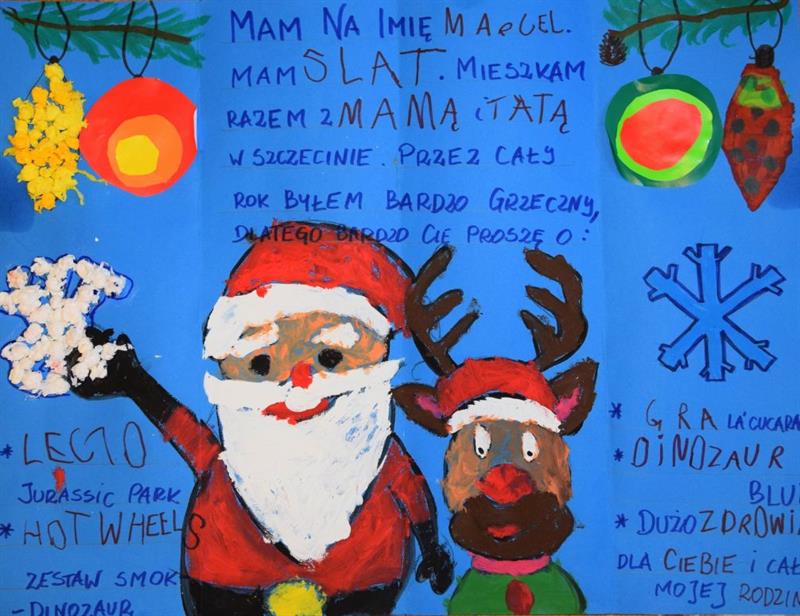 MAM NA IMIĘ MARCEL.
MAM 5 LAT. MIESZKAM
RAZEM Z MAMĄ I TATĄ
W SZCZECINIE. PRZEZ CAŁY
ROK BYŁEM BARDZO GRZECZNY,
DLATEGO BARDZO CIĘ PROSZĘ O:
* LEGO
JURASSIC PARK
* HOT WHEELS
ZESTAW SMOK
- DINOZAUR
* GRA LA CUCARA
* DINOZAUR
BLU
* DUŻO ZDROWI
DLA CIEBIE I CAŁ
MOJEJ RODZIN